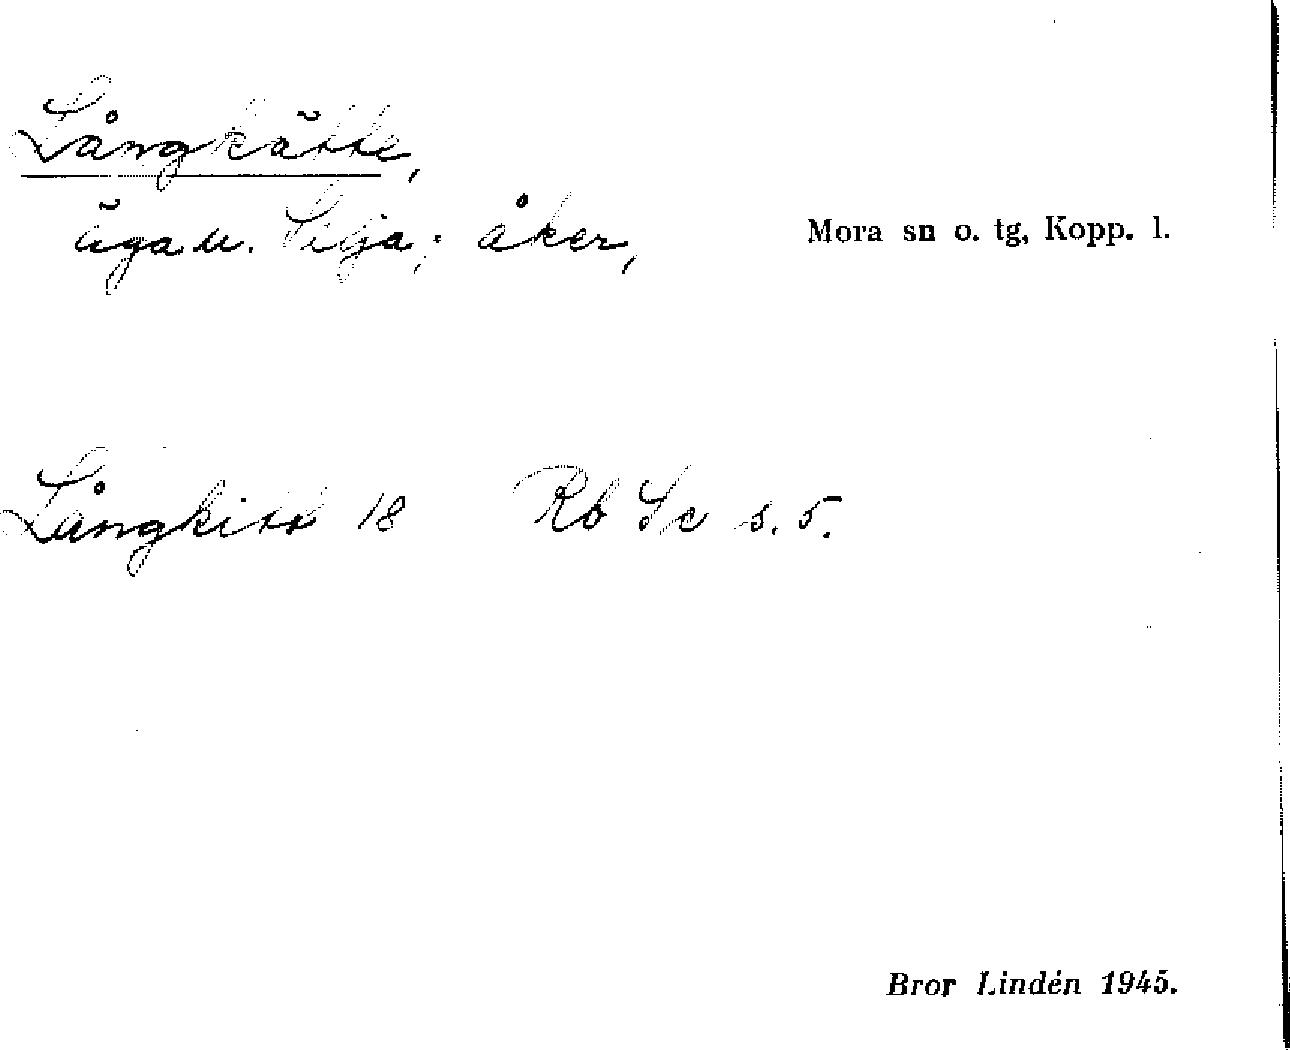 Långkätte,
äga u. Silja; åker,
Mora sn o. tg, Kopp. l.
Långkitt 18 Rb Sc s. 5.
Bror Lindén 1945.